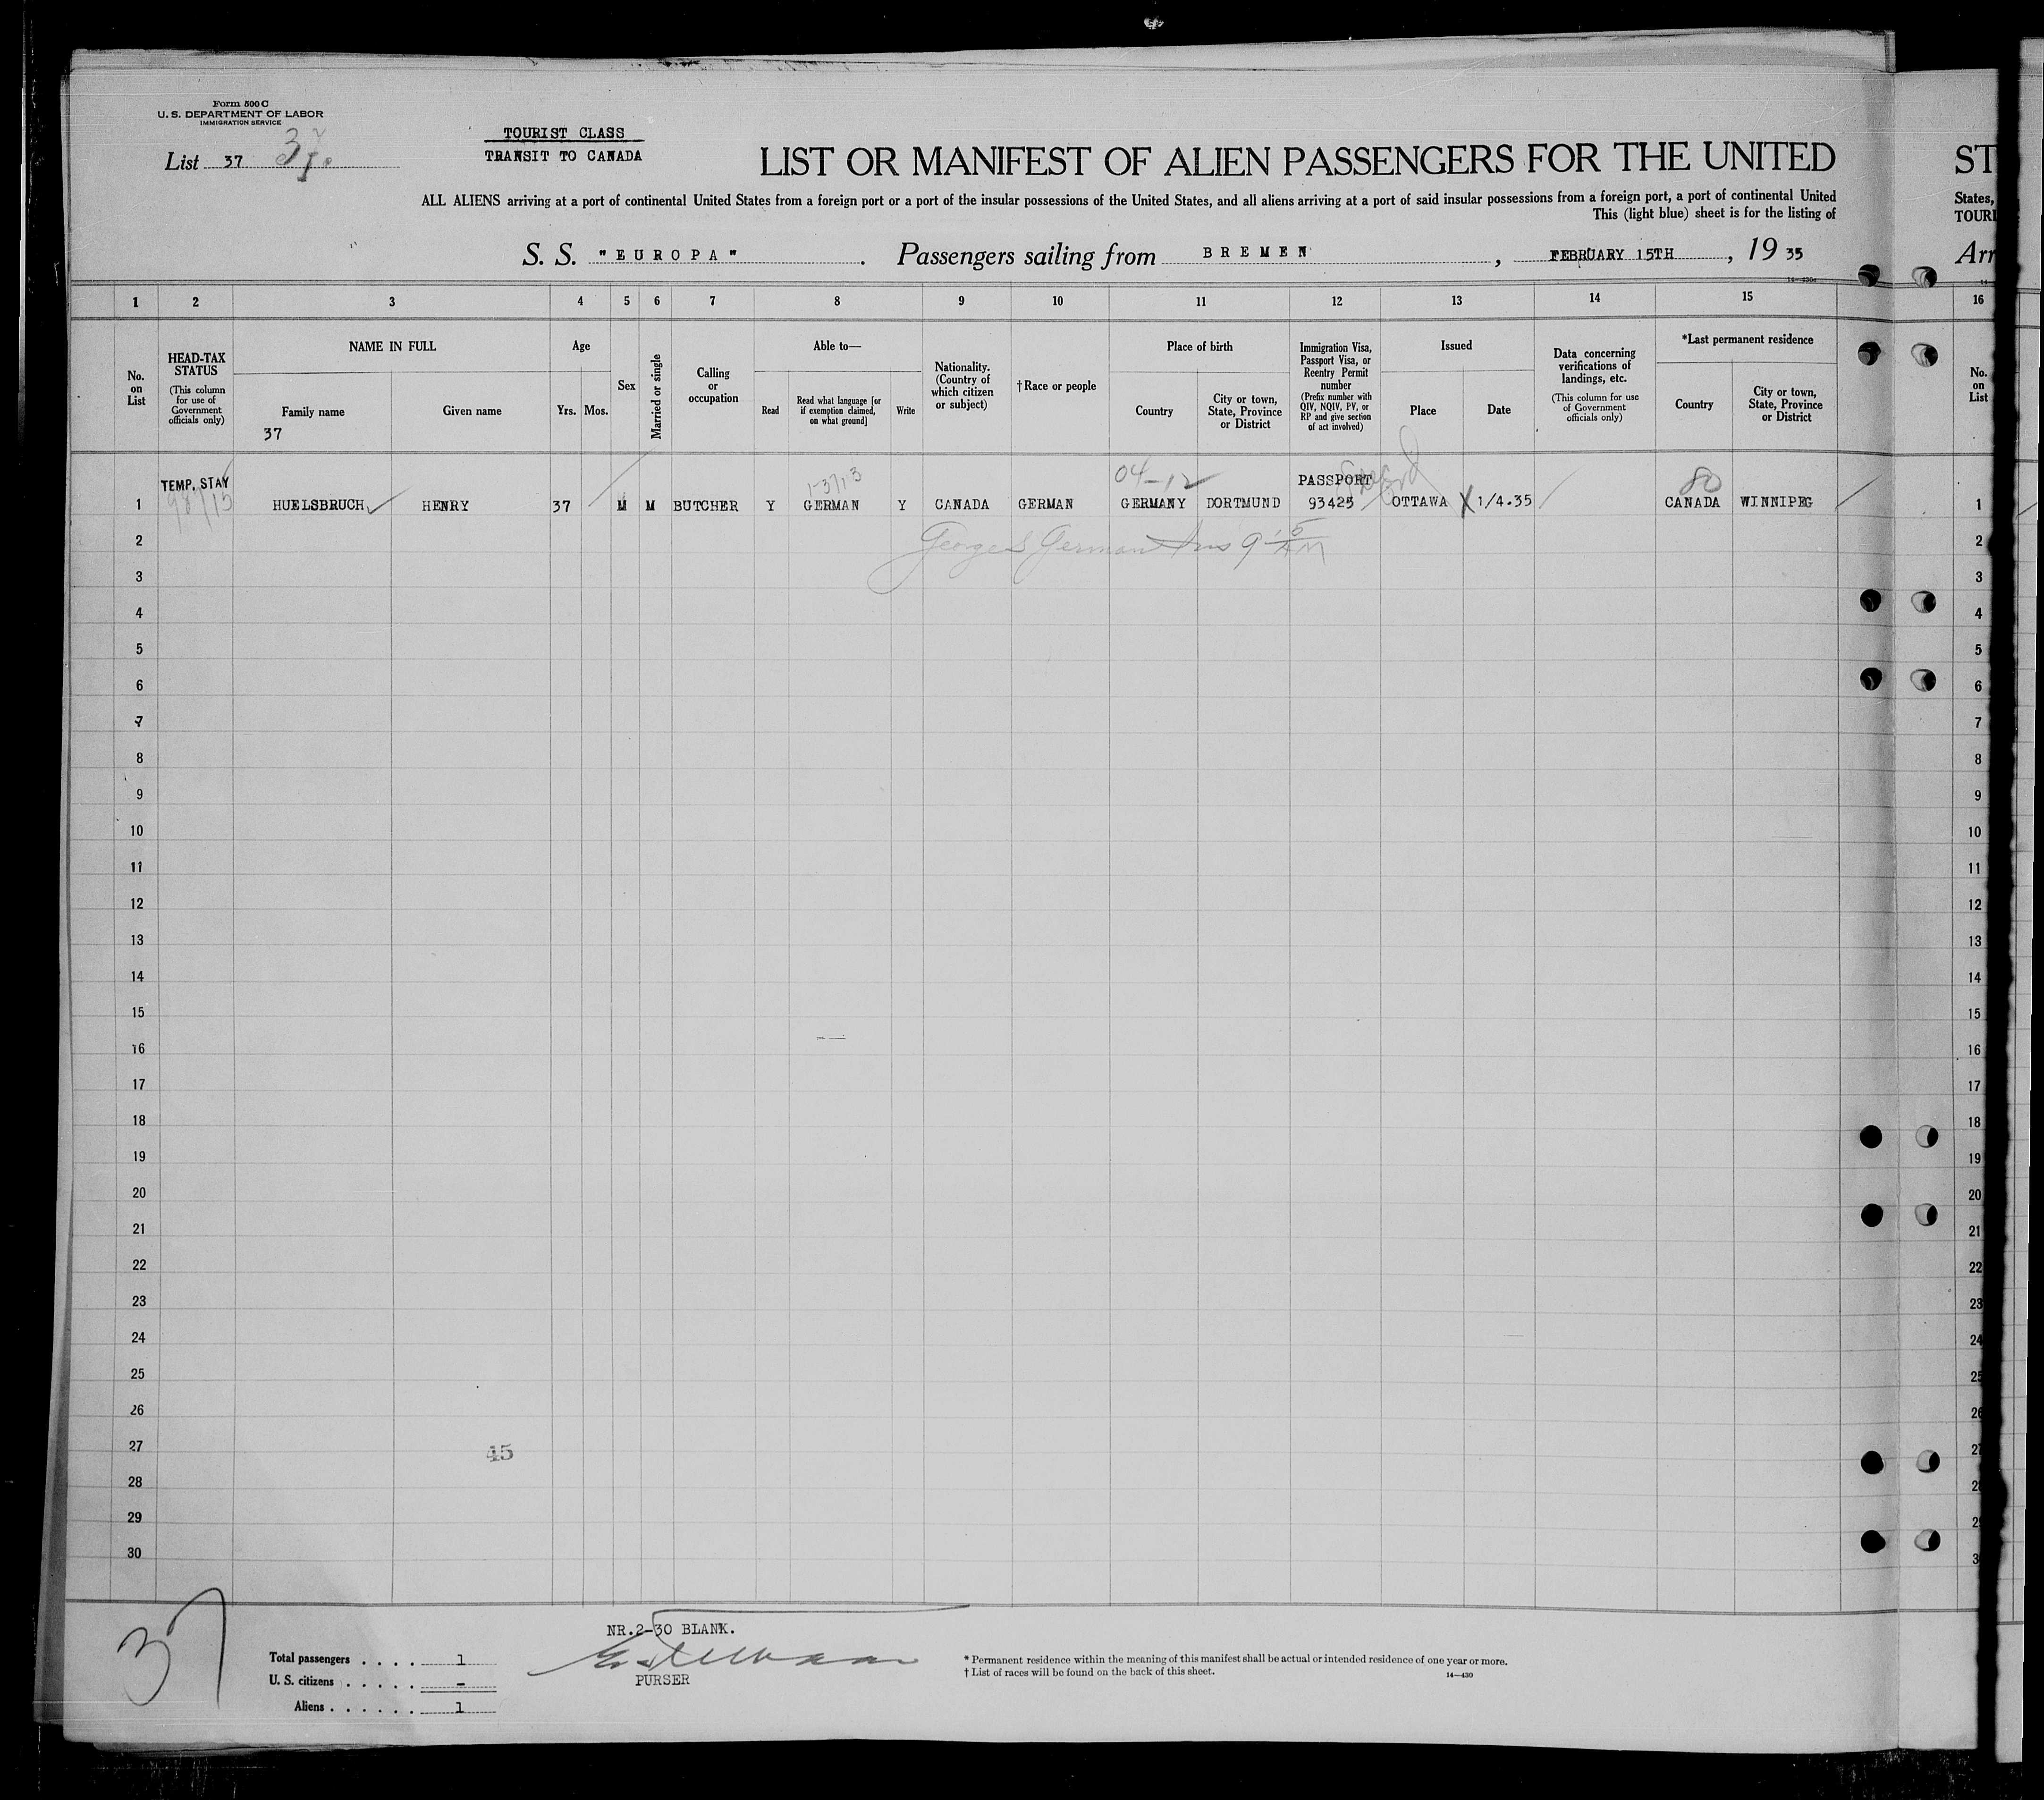 Form 500 C
U. S. DEPARTMENT OF LABOR
IMMIGRATION SERVICE
List 37 37
TOURIST CLASS
TRANSIT TO CANADA
LIST OR MANIFEST OF ALIEN PASSENGERS FOR THE UNITED
ST
ALL ALIENS arriving at a port of continental United States from a foreign port or a port of the insular possessions of the United States, and all aliens arriving at a port of said insular possessions from a foreign port, a port of continental United
States,
This (light blue) sheet is for the listing of
TOURI
S. S. "EUROPA". Passengers sailing from BREMEN, FEBRUARY 15TH, 19 35
Arr
1 2 3 4 5 6 7 8 9 10 11 12 13 14 15 16
No. on List
HEAD-TAX STATUS
(This column for use of Government officials only)
NAME IN FULL
Family name
37
Given name
Age
Yrs. Mos.
Sex
Married or single
Calling or occupation
Able to—
Read
Read what language [or if exemption claimed, on what ground]
Write
Nationality. (Country of which citizen or subject)
†Race or people
Place of birth
Country
City or town, State, Province or District
Immigration Visa, Passport Visa, or Reentry Permit number
(Prefix number with QIV, NQIV, PV, or RP and give section of act involved)
Issued
Place
Date
Data concerning verifications of landings, etc.
(This column for use of Government officials only)
*Last permanent residence
Country
City or town, State, Province or District
No. on List
TEMP. STAY 04-12 PASSPORT 80
1 HUELSBRUCH HENRY 37 M M BUTCHER Y GERMAN Y CANADA GERMAN GERMANY DORTMUND 93425 OTTAWA 1/4.35 CANADA WINNIPEG 1
2 George S German 2
3 3
4 4
5 5
6 6
7 7
8 8
9 9
10 10
11 11
12 12
13 13
14 14
15 15
16 16
17 17
18 18
19 19
20 20
21 21
22 22
23 23
24 24
25 25
26 26
27 45 27
28 28
29 29
30 3
37
NR.2-30 BLANK.
PURSER
Total passengers . . . . 1
U. S. citizens . . . . . -
Aliens . . . . . . 1
* Permanent residence within the meaning of this manifest shall be actual or intended residence of one year or more.
† List of races will be found on the back of this sheet.
14—430